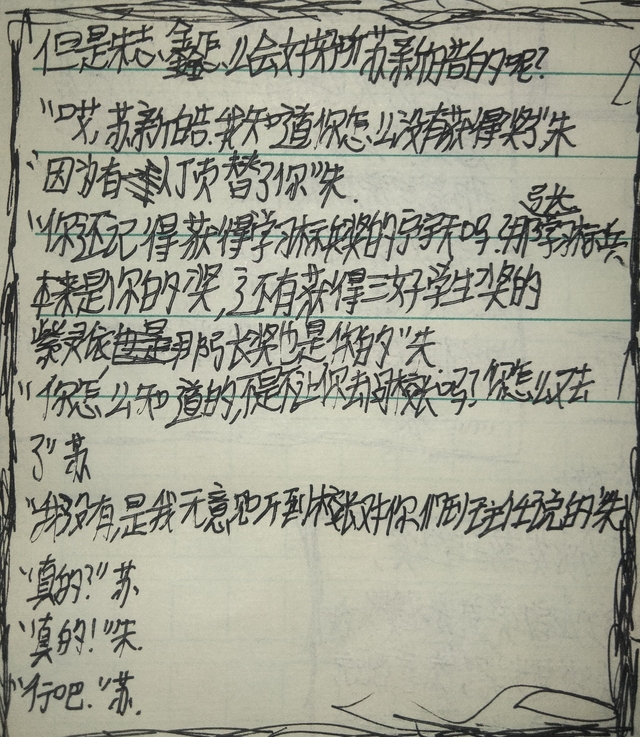 但是朱志鑫怎么会对得起苏新皓的呢？
“哎，苏新皓.我知道你怎么没有获得奖”朱
“因为有人顶替了你”朱.
“你还记得获得学习标兵奖的宇轩吗？那张学习标兵
本来是你的奖，还有获得三好学生奖的
紫灵依那张奖也是你的”朱
“你怎么知道的，不是不让你去问校长吗？你怎么又去
了”苏
“我没有，是我无意听到校长对你们班主任说的”朱
“真的？”苏
“真的！”朱.
“行吧.”苏.